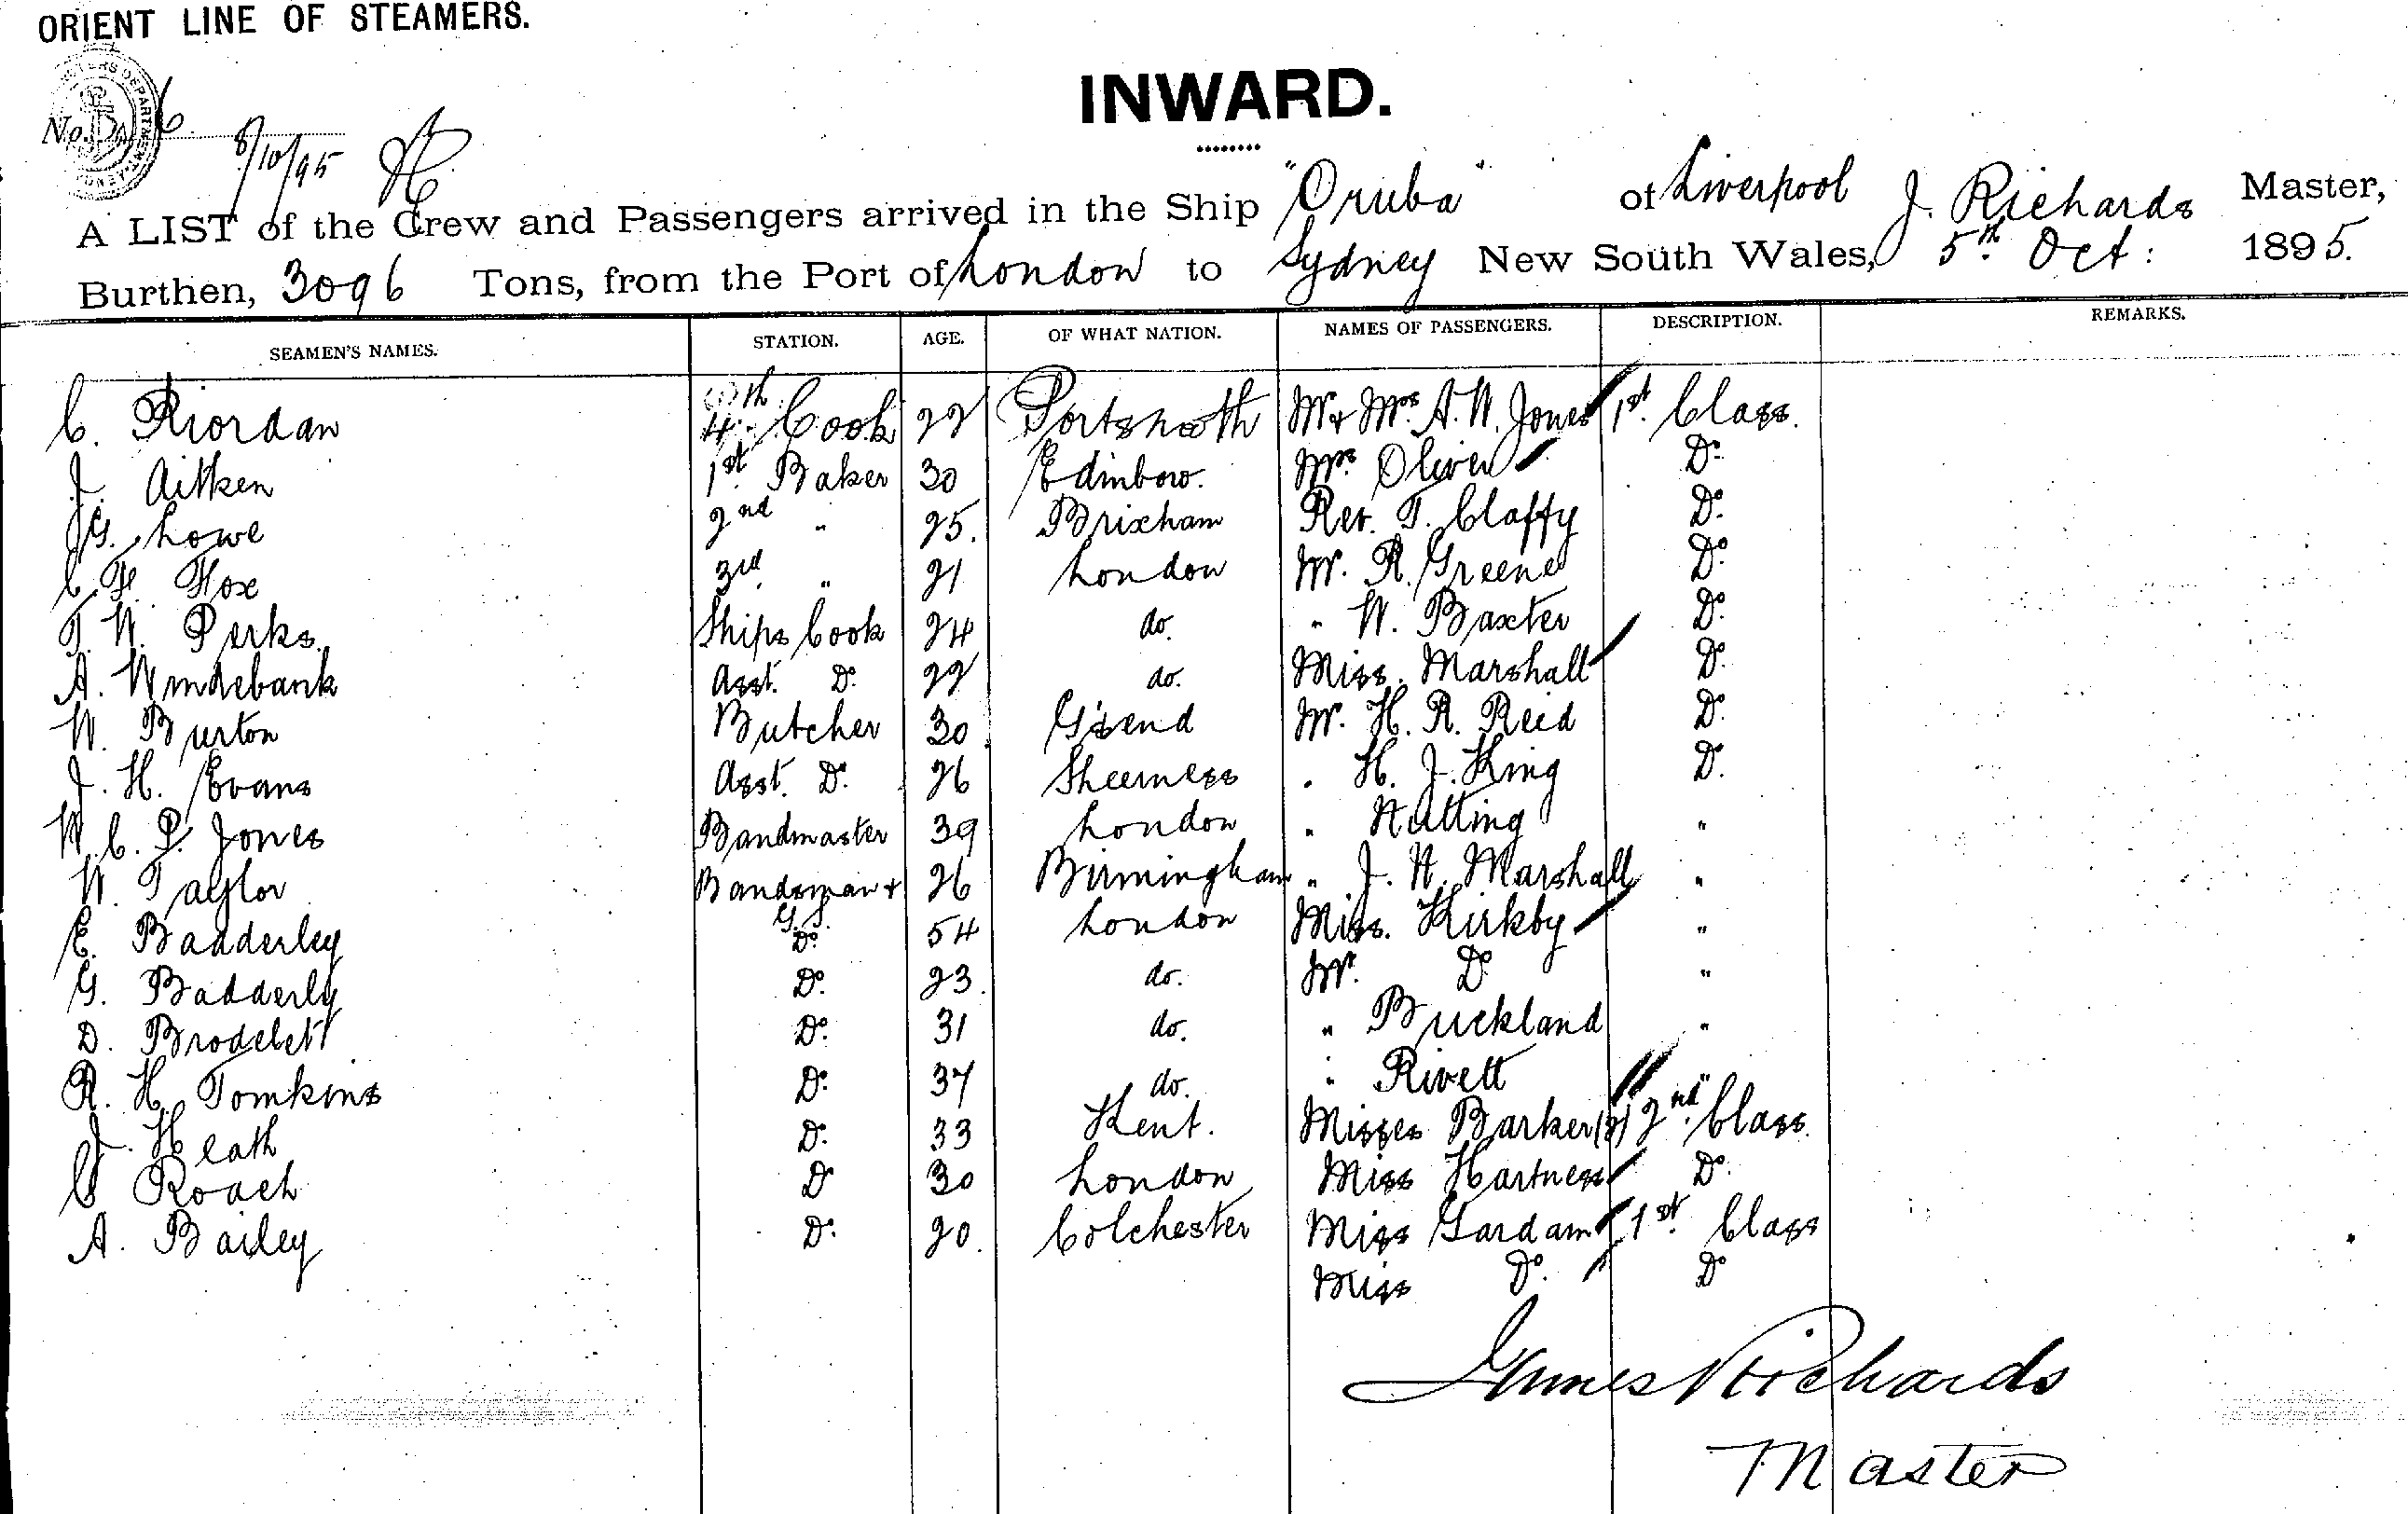 ORIENT LINE OF STEAMERS.
INWARD.
No. 6
8/10/95
A LIST of the Crew and Passengers arrived in the Ship "Oruba" of Liverpool J. Richards Master,
Burthen, 3096 Tons, from the Port of London to Sydney New South Wales, 5th Oct: 1895.
SEAMEN'S NAMES. STATION. AGE. OF WHAT NATION. NAMES OF PASSENGERS. DESCRIPTION. REMARKS.
C. Riordan 4th Cook 22 Portsmooth Mr & Mrs A. W. Jones 1st Class.
J. Aitken 1st Baker 30 Edinboro. Mrs Oliver Do
J.G. Lowe 2nd " 25. Brixham Rev. T. Claffy Do
C. F. Fox 3rd " 21 London Mr. R. Greene Do
T. W. Perks. Ships Cook 24 do. " W. Baxter Do
A. Windebank Asst. Do 22 do. Miss. Marshall Do
W. Burton Butcher 30 G'send Mr. H. R. Reid Do
J. H. Evans Asst. Do 26 Sheerness " H. J. King Do
W. C. P. Jones Bandmaster 39 London " Nutting "
W. Taylor Bandsman & G.S. 26 Birmingham " J. W. Marshall "
E. Badderley Do 54 London Miss. Kirkby "
G. Badderly Do 23. do. Mr. Do "
D. Do 31 do. " Buckland "
R. H. Tomkins Do 37 do. " Rivett "
J. Heath Do 33 Kent. Misses Barker (2) 2nd Class.
C. Roach Do 30 London Miss Hartness Do
A. Bailey Do 20. Colchester Miss Gardam 1st Class
Miss Do Do
James Richards
Master